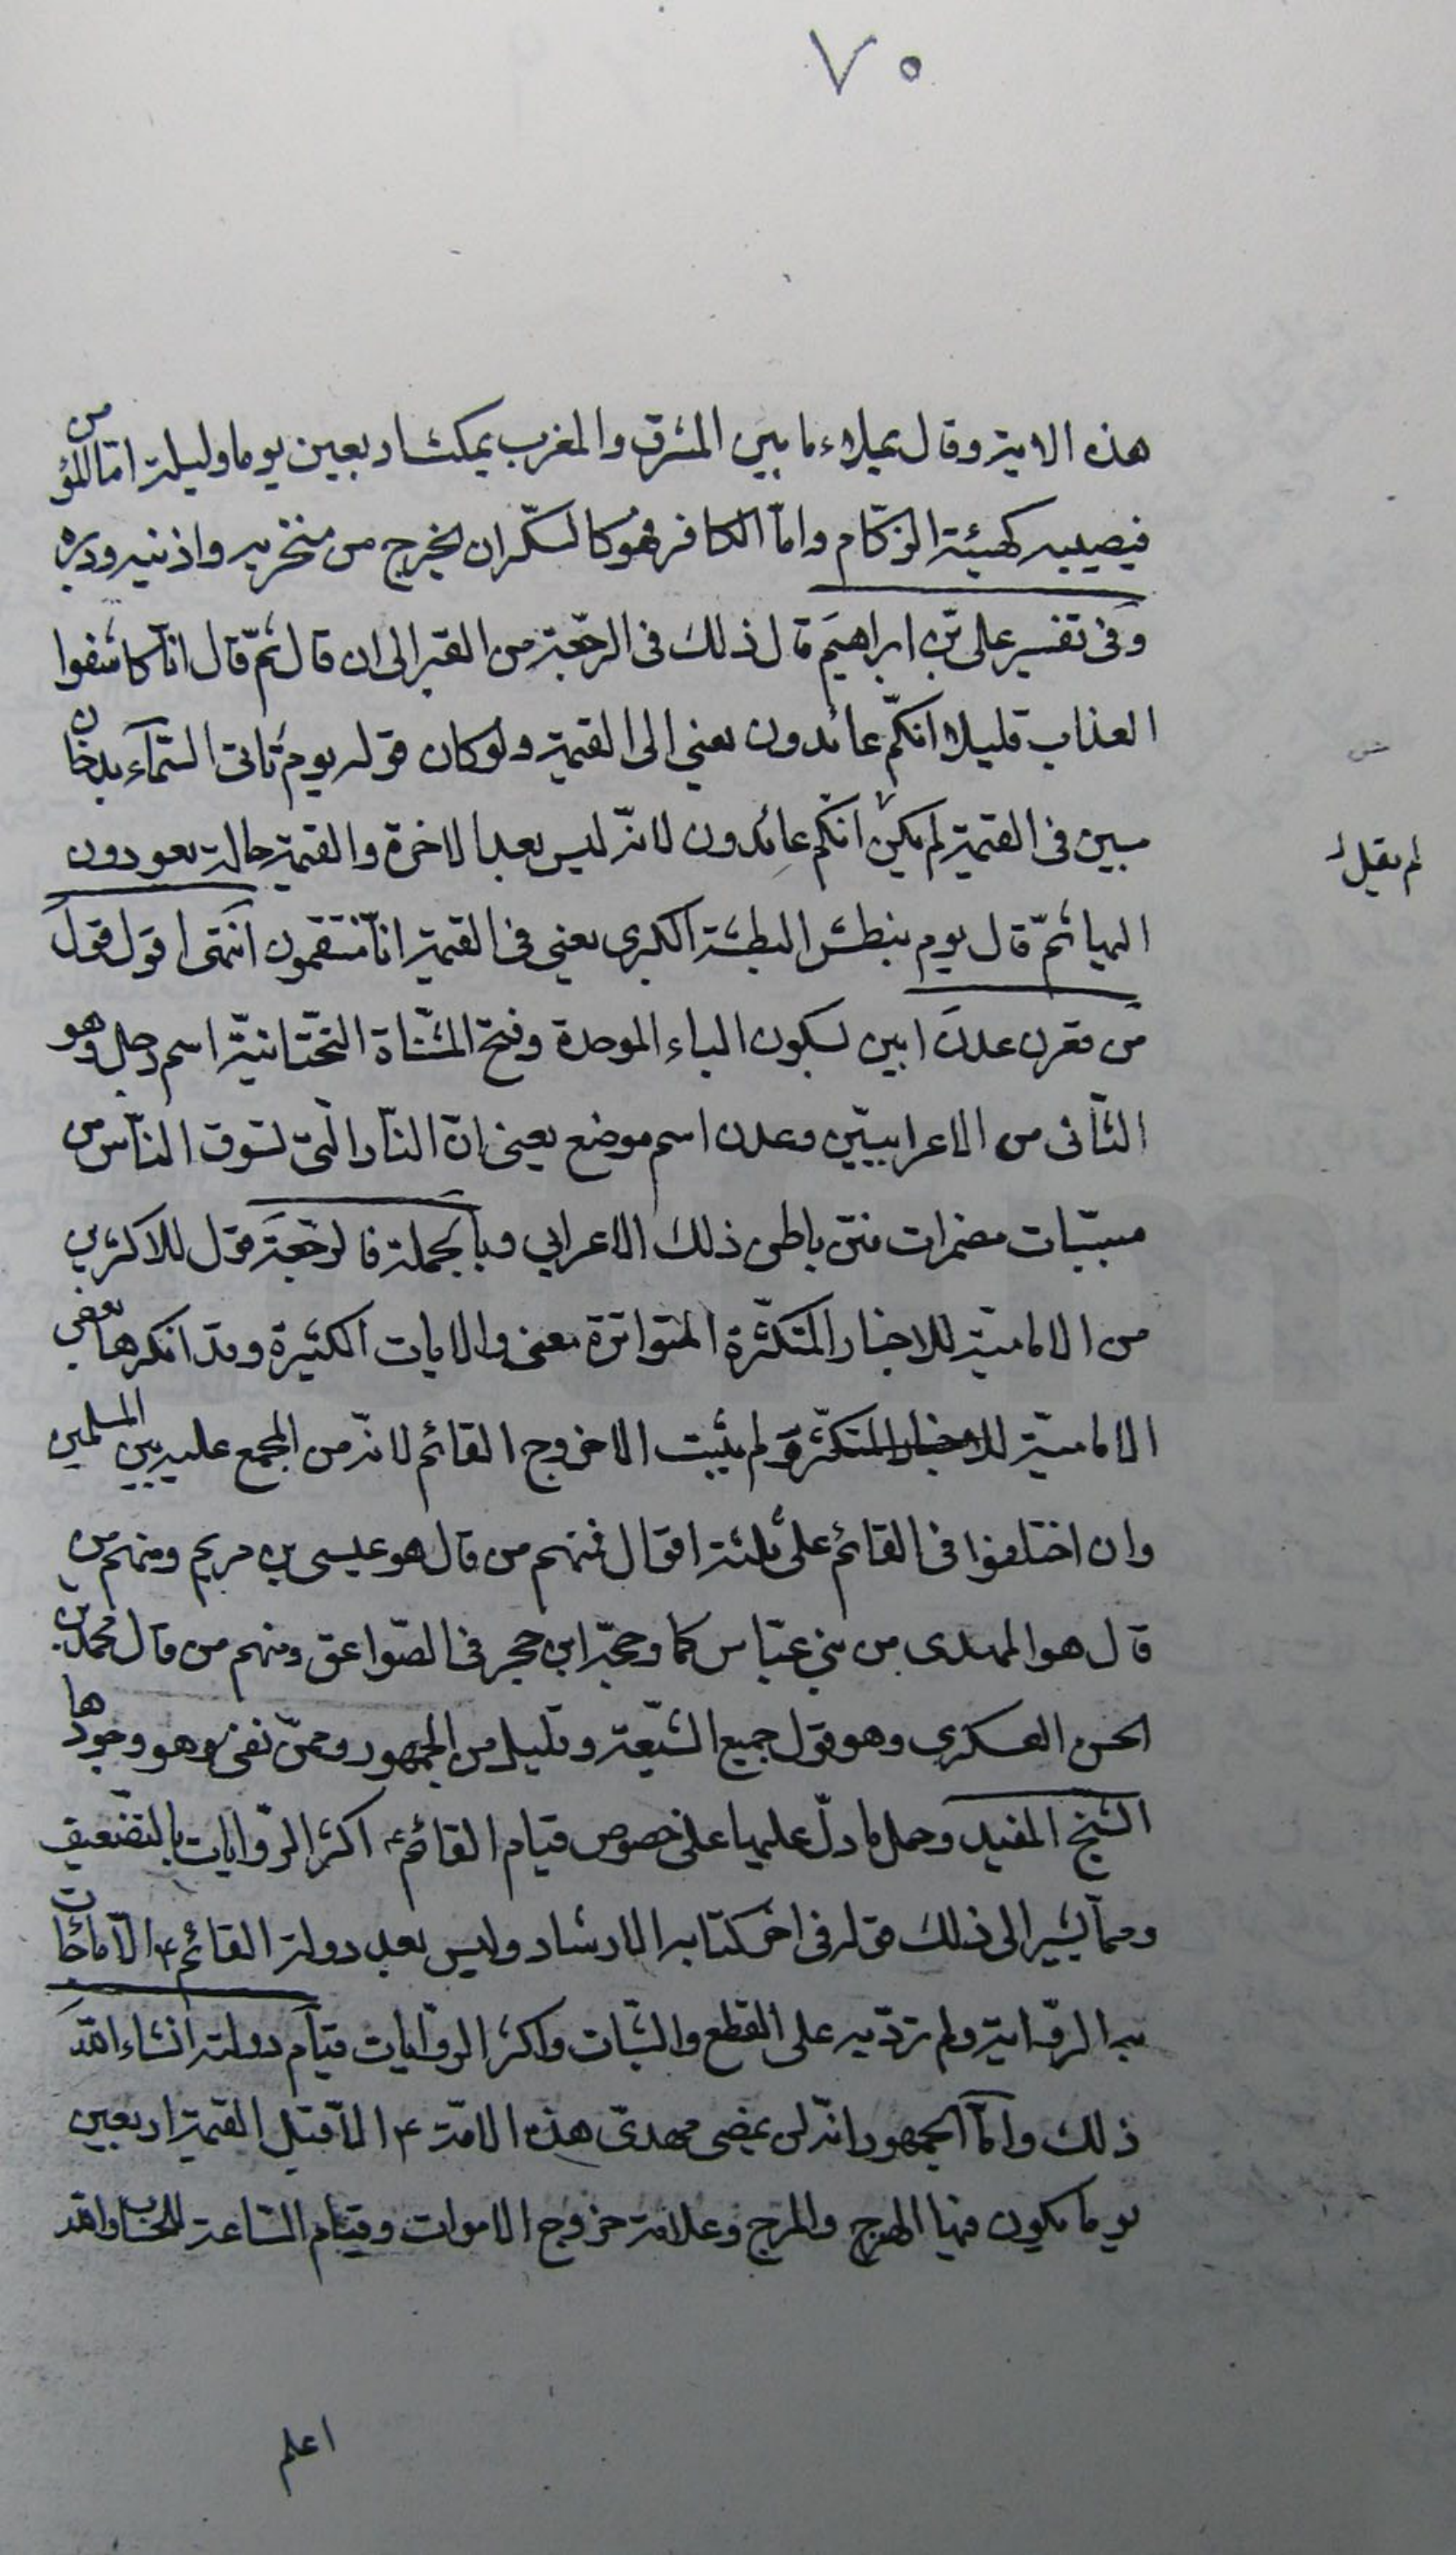 ٧٠
هذه الاية وقال يملاء ما بين المشرق والمغرب يمكث اربعين يوما وليلة امّا المؤمن
فيصيبه كهيئة الزكام وامّا الكافر فهو كالسكران يخرج من منخريه واذنيه ودبره
وفى تفسير على بن ابراهيم قال ذلك فى الرجعة من القبر الى ان قال ثمّ قال انّا كاشفوا
العذاب قليلا انكم عائدون يعني الى القيمة ولو كان قوله يوم تأتى السّمآء بدخان
مبين فى القيمة لم يكن انكم عائدون لانه ليس بعد الاخرة والقيمة حالة يعودون
لم يقل
اليها ثمّ قال يوم نبطش البطشة الكبرى يعنى فى القيمة انّا منتقمون انتهى اقول قوله
من قعرن عدن ابين بسكون الباء الموحدة وفتح المثنّاة التحتانيّة اسم رجل وهو
الثانى من الاعرابيين وعدن اسم موضع يعنى انّ النار الّتى تسوق النّاس من
مسبّبات مضمرات فتن باطن ذلك الاعرابي وبالجملة فالرّجعة قول للاكثرين
من الاماميّة للاخبار المتكثّرة المتواترة معنى والايات الكثيرة وقد انكرها بعض
الاماميّة للاخبار المتكثرة ولم يثبت الا خروج القائم لانّه من المجمع عليه بين المسلمين
وان اختلفوا فى القائم على ثلثة اقوال فمنهم من قال هو عيسى بن مريم ومنهم من
قال هو المهدى من بني عبّاس كما وجحه ابن حجر فى الصّواعق ومنهم من قال محمد بن
الحسن العسكرى وهو قول جميع الشّيعة وقليل من الجمهور وممّن نفى وهو وجودها
الشيخ المفيد وحمل ما دلّ عليها على خصوص قيام القائم ع اكثر الرّوايات بالتضعيف
وممّا يشير الى ذلك قوله فى اخر كتابه الارشاد وليس بعد دولة القائم ع الّا ما جائت
به الرّواية ولم ترد به على القطع والثبات واكثر الروايات قيام دولته انشاء الله
ذلك وامّا الجمهور انّه لن يمضى مهدىّ هذه الامّة ع الا قبل القيمة اربعين
يوما يكون فيها الهرج والمرج وعلامة خروج الاموات وقيام السّاعة للحساب والله
اعلم